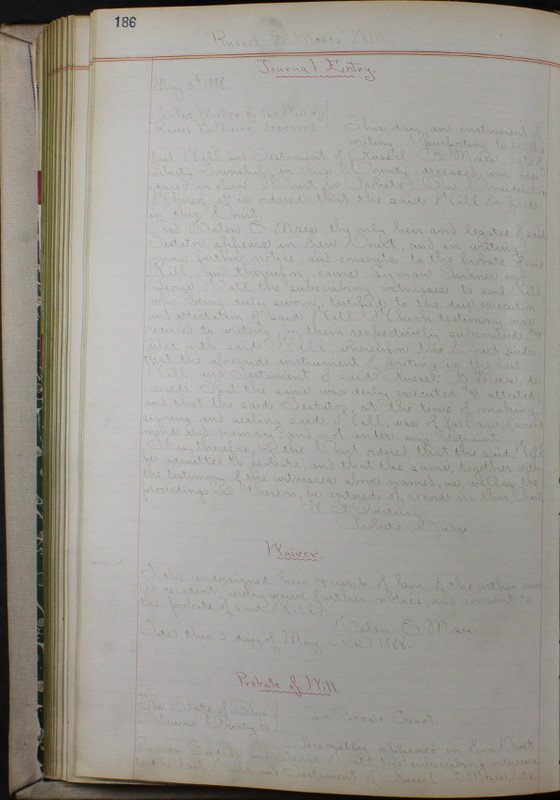 186
Russel B Moses' Will
Journal Entry.
May 5th 188
In the Matter of the Will of
Russel B Moses deceased
This day an instrument of
writing purporting to be the
last Will and Testament of Russel B Moses late of
Liberty Township, in this County, deceased, was
duced in open Court for Probate. On Consideration
Whereof, it is ordered that the said Will be filed
in this Court.
And Helen O Moses, the only heir and legatee of said
Testator appears in open Court, and in writing
waives further notice, and consents to the Probate of said
Will, and thereupon, came Lyman Gardner and
George Wall the subscribing witnesses to said Will
who being duly sworn, testified to the due execution
and attestation of said Will. Which testimony was
reduced to writing, by them respectively subscribed, &
filed with said Will, whereupon the Court finds
that the aforesaid instrument of writing is the last
Will and Testament of said Russel B Moses, de
ceased: that the same was duly executed & attested,
and that the said Testator, at the time of making,
signing and sealing said Will, was of full age, sound
mind and memory, and not under any restraint.
It is, therefore, by the Court ordered, that the said Will
be admitted to probate, and that the same, together with
the testimony of the witnesses above named, as well as the
proceedings thereon, be entered of record in this Court
Probate Judge
Waiver.
I, the undersigned heir & next of kin of the within named
decedent, hereby waive further notice, and consent to
the probate of said Will.
Helen O Moses
Dated this 5 day of May A.D. 1888.
Probate of Will.
The State of Ohio
Delaware County ss
In Probate Court.
Personally appeared in open Court
Lyman Gardner and George Wall the subscribing witnesses
to the last Will and Testament of Russel B Moses late